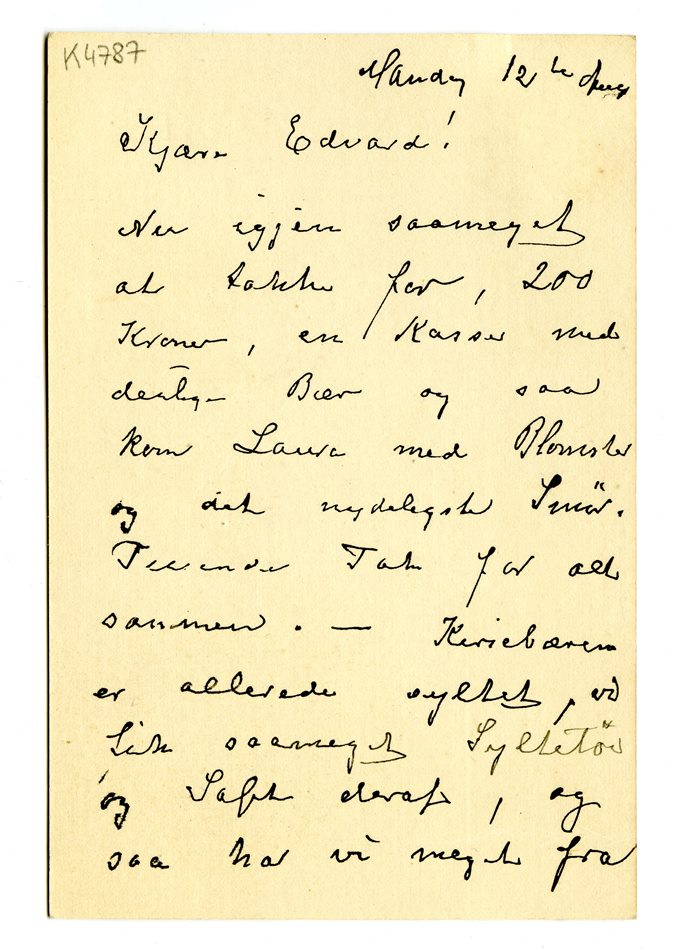 K4787
Mandag 12te Aug
Kjære Edvard!
Nu igjen saameget
at takke for, 200
Kroner, en Kasse med
deilige Bær og saa
kom Laura med Blomster
og det nydeligste Smör.
Tusende Tak for alt
sammen. — Kirsebærene
er allerede syltet, vi
fik saameget Syltetöi
og Saft deraf, og
saa har vi meget fra